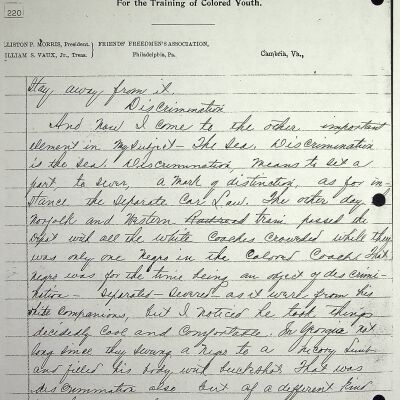 For the Training of Colored Youth.
220
ELLISTON P. MORRIS, President. FRIENDS' FREEDMEN'S ASSOCIATION,
WILLIAM S. VAUX, Jr., Treas. Philadelphia, Pa. Cambria, Va.,
Stay away from it.
Discrimination
And now I come to the other important
element in my subject - The Sea. Discrimination
is the sea. Discrimination, means to set a
part, to sever, a mark of distinction, as for in-
stance the separate Car Law. The other day a
Norfolk and Western Railroad train passed the
depot with all the white coaches crowded while there
was only one negro in the Colored Coach. That
negro was for the time being an object of discrimi-
nation - separated - severed - as it were from his
white companions, but I noticed he took things
decidedly cool and comfortable. In Georgia not
long since they swung a negro to a hickory limb
and filled his body with buckshot. That was
discrimination also but of a different kind